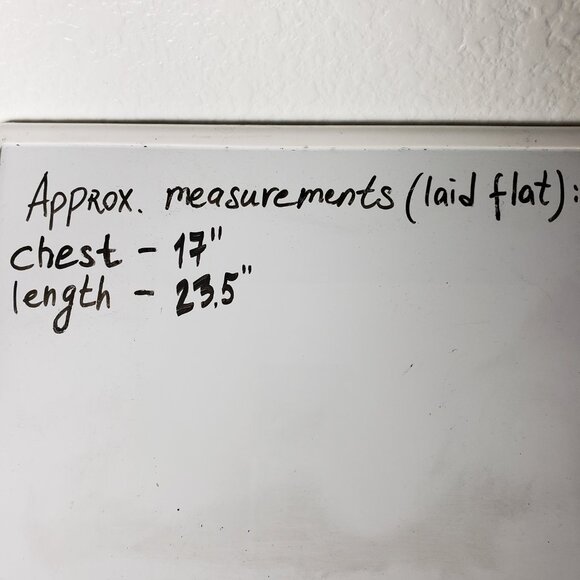 Approx. measurements (laid flat):
chest - 17"
length - 23.5"